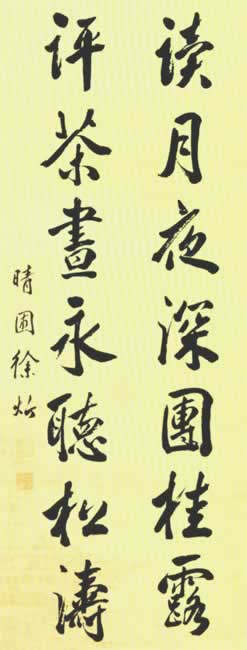 读月夜深團桂露
评茶晝永聽松濤
晴圃徐炘